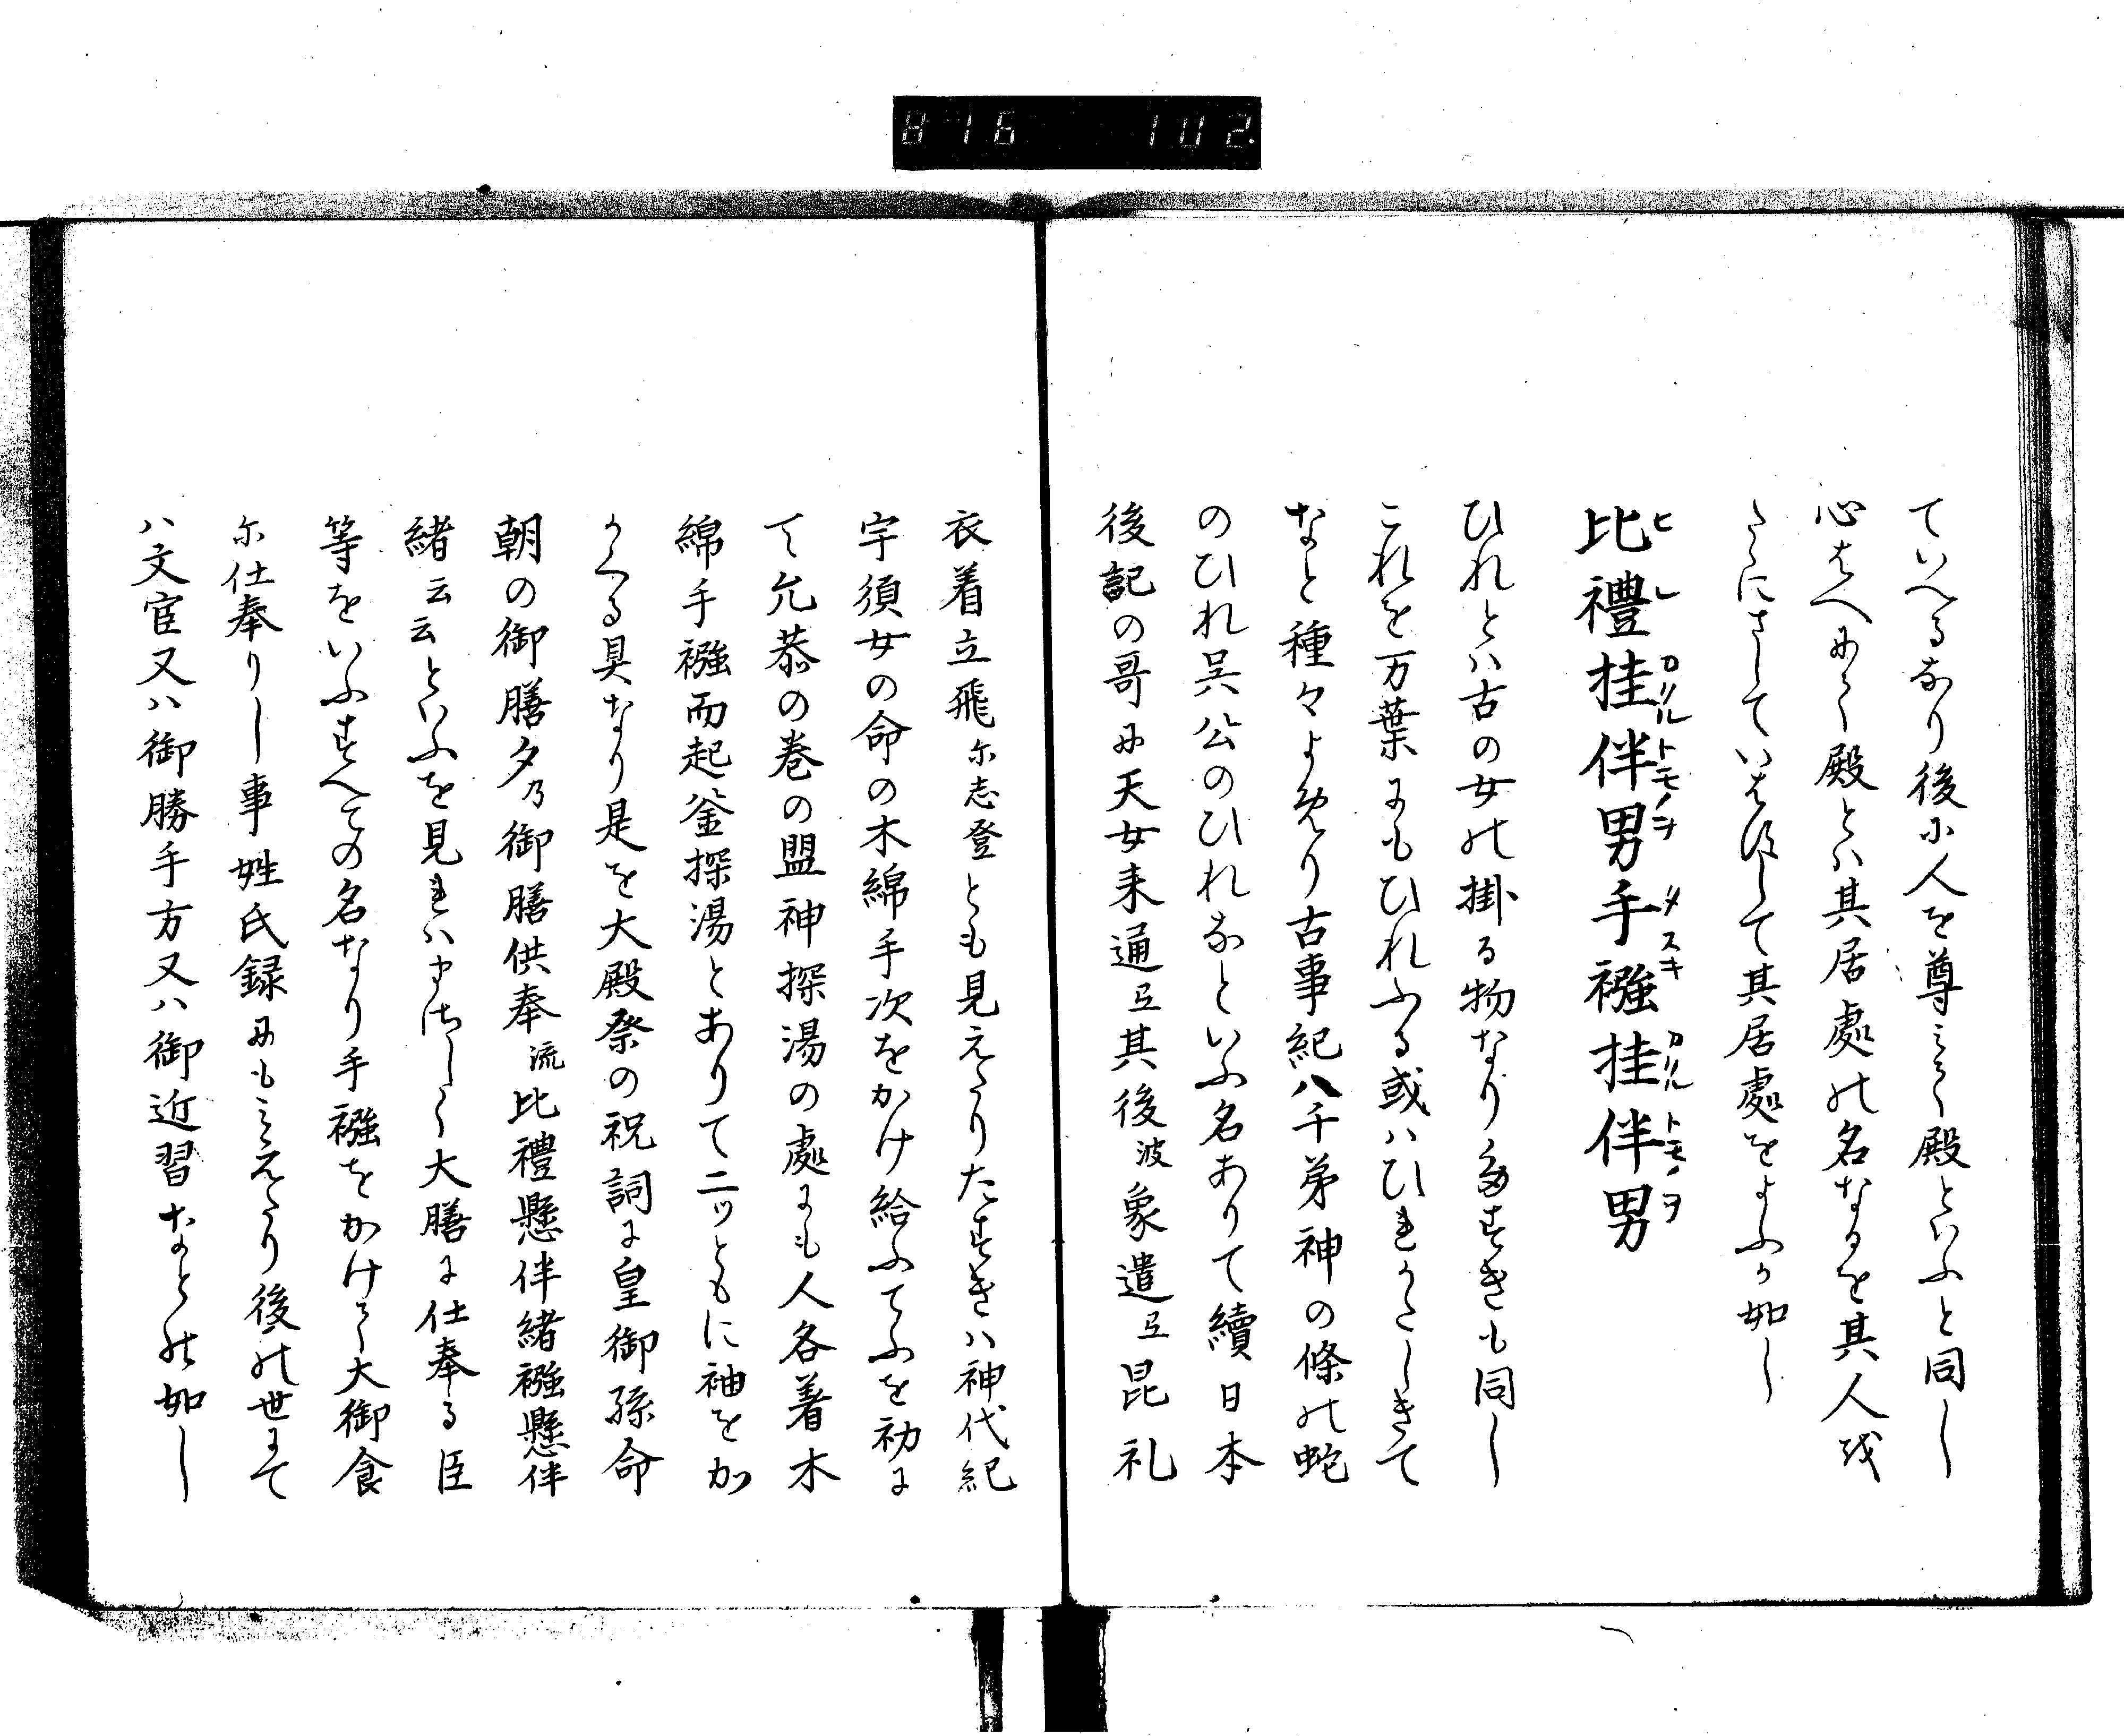 816 102.
ていへるなり後に人を尊みて殿といふと同し
心はへにて殿とは其居處の名なるを其人を
たゝにさしていはすして其居處をよふか如し
比禮挂伴男手襁挂伴男
ヒレカヽルトモノヲタスキカヽルトモノヲ
ひれとハ古の女の掛る物なりたすきも同し
これを万葉にもひれふる或ハひれかたしきて
なと種々よめり古事紀八千弟神の條の蛇
のひれ呉公のひれなといふ名ありて續日本
後記の哥に天女来通弖其後波象遣弖毘礼
衣着立飛尓志登とも見えたりたすきハ神代紀
宇須女の命の木綿手次をかけ給ふてふを初に
て允恭の巻の盟神探湯の處にも人各着木
綿手襁而起釜探湯とありて二ツともに袖をか
かへる具なり是を大殿祭の祝詞に皇御孫命
朝の御膳夕乃御膳供奉流比禮懸伴緒襁懸伴
緒云云といふを見れハかけまして大膳に仕奉る臣
等をいふすへての名なり手襁をかけて大御食
尓仕奉りし事姓氏録にもみえたり後の世にて
ハ文官又ハ御勝手方又ハ御近習なとの如し